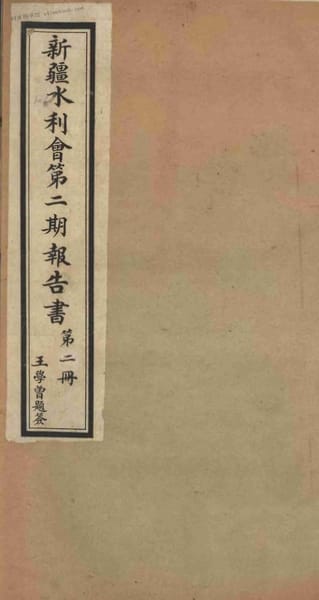 新疆水利會第二期報告書
第二冊
王學曾題簽